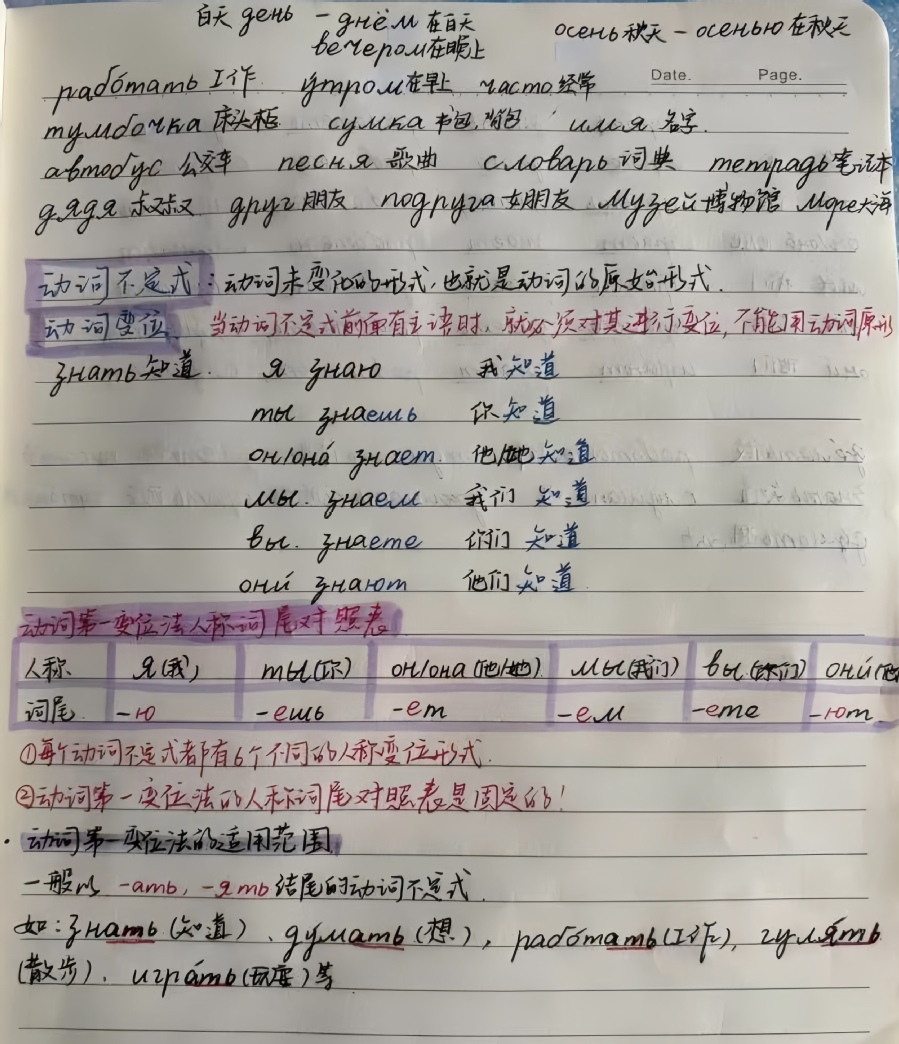 白天 день - днём 在白天
вечером 在晚上
осень 秋天 - осенью 在秋天
рабо́тать 工作 у́тром 在早上 часто 经常
Date. Page.
тумбочка 床头柜 сумка 书包,背包 имя 名字.
автобус 公交车 песня 歌曲 словарь 词典 тетрадь 笔记本
дядя 叔叔 друг 朋友 подруга 女朋友 музей 博物馆 море 大海
动词不定式:动词未变化的形式,也就是动词的原始形式.
动词变位 当动词不定式前面有主语时,就必须对其进行变位,不能用动词原形
знать 知道. я знаю 我知道
ты знаешь 你知道
он/она́ знает. 他/她知道
мы. знаем 我们 知道
вы. знаете 你们 知道
они́ знают 他们 知道
动词第一变位法人称词尾对照表
人称 я(我) ты(你) он/она(他/她) мы(我们) вы(你们) они́(他
词尾 -ю -ешь -ет -ем -ете -ют
①每个动词不定式都有6个不同的人称变位形式.
②动词第一变位法的人称词尾对照表是固定的!
· 动词第一变位法的适用范围
一般以 -ать, -ять 结尾的动词不定式
如:знать (知道)、думать (想), рабо́тать (工作), гуля́ть
(散步)、игра́ть (玩耍) 等